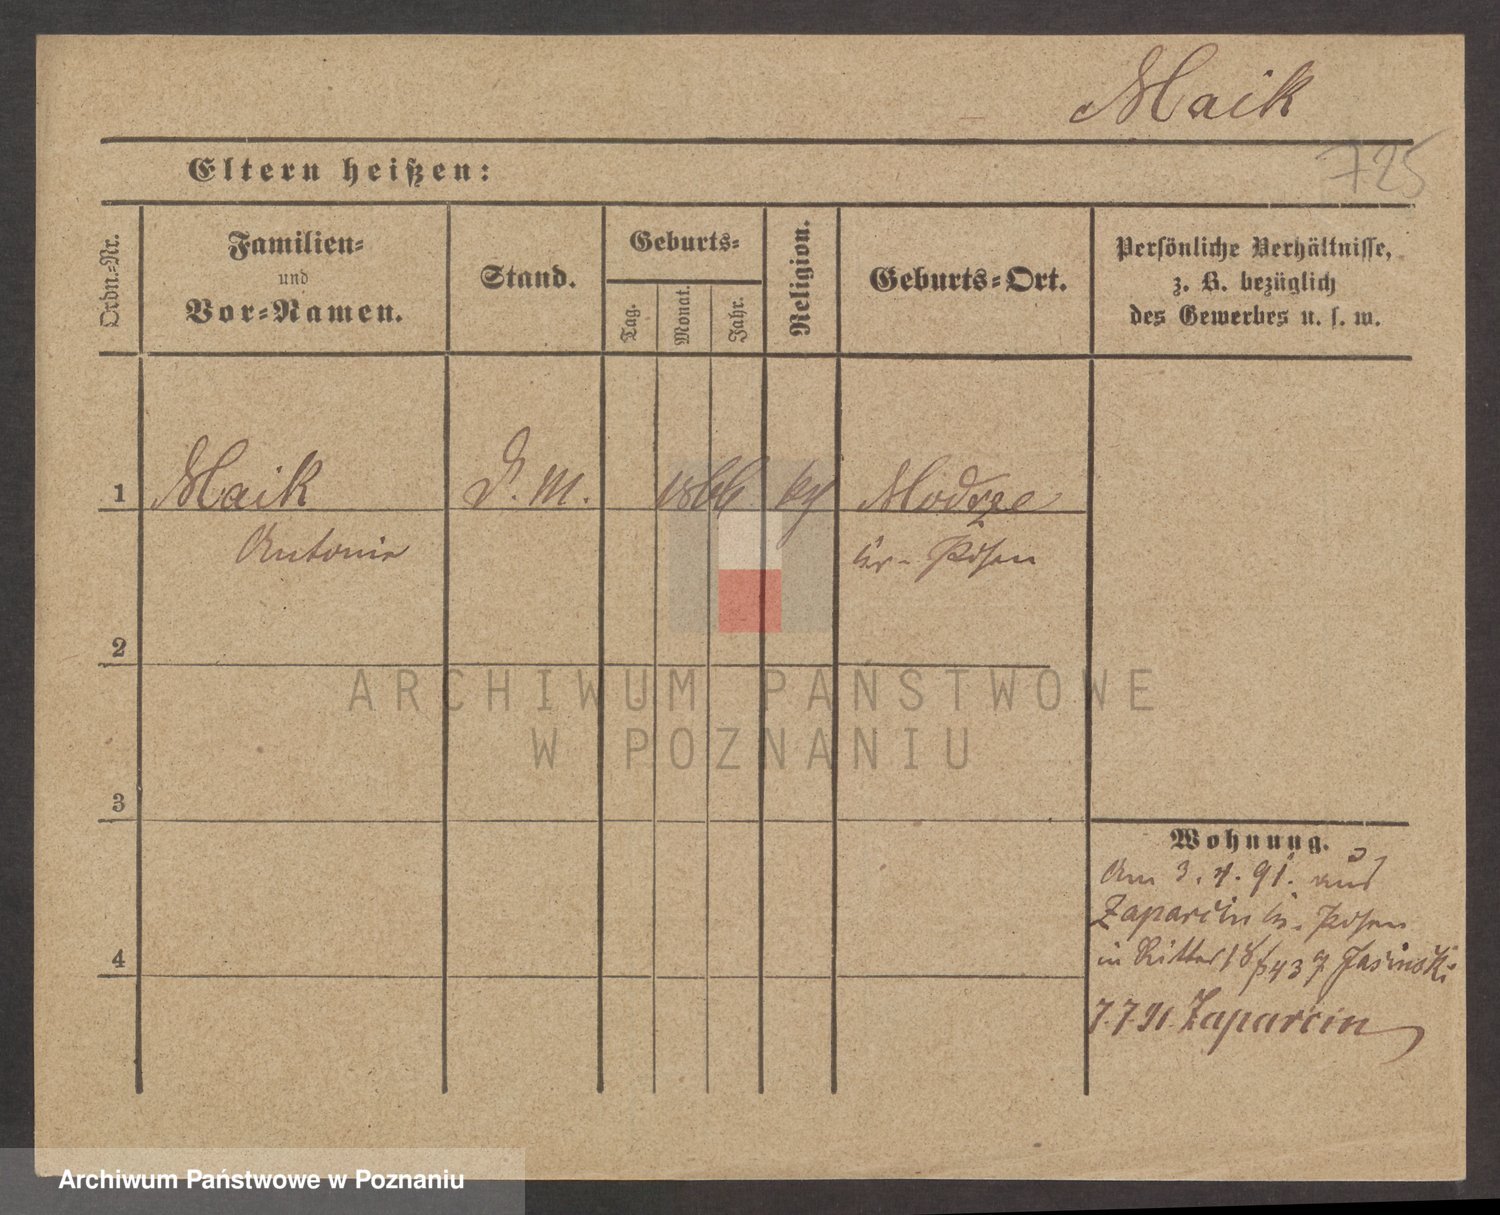 Maik
725
Eltern heißen:
Ordn.-Nr.
Familien-
und
Vor-Namen.
Stand.
Geburts-
Tag.
Monat.
Jahr.
Religion.
Geburts-Ort.
Persönliche Verhältnisse,
z. B. bezüglich
des Gewerbes u. s. w.
1 Maik D. M. 1866 Modrze
Antonie Kr. Posen
2
ARCHIWUM PAŃSTWOWE
W POZNANIU
3
Wohnung.
Am 3. 4. 91. aus
Zaparcin Kr. Posen
in Ritter 18/43 Jasinski
7.7.91. Zaparcin
4
Archiwum Państwowe w Poznaniu